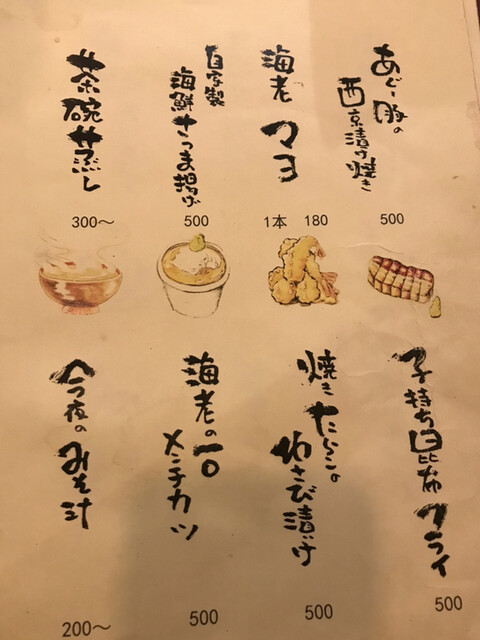 あぐー豚の
西京漬け焼き
500
海老マヨ
1本 180
自家製
海鮮さつま揚げ
500
茶碗蒸し
300～
子持ち昆布フライ
500
焼きたらこの
わさび漬け
500
海老の一口
メンチカツ
500
今夜のみそ汁
200～